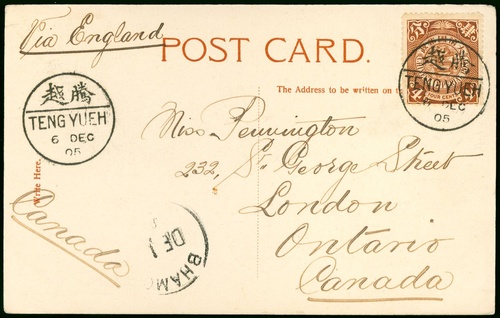 Via England
POST CARD.
The Address to be written on
越騰
TENG YUEH
6 DEC
05
越騰
TENG YUEH
DEC
05
FOUR CENTS
Write Here.
Miss Pennington
232, St George Street
London
Ontario
Canada
Canada
DE 1
BHAMO